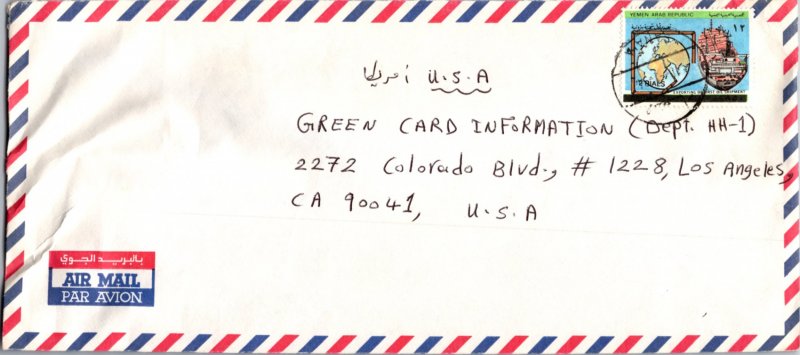 YEMEN ARAB REPUBLIC
١٢
RIALS
EXPORTING OF FIRST OIL SHIPMENT
أمريكا U.S.A
GREEN CARD INFORMATION (Dept. HH-1)
2272 Colorado Blvd., # 1228, Los Angeles,
CA 90041, U.S.A
بالبريد الجوي
AIR MAIL
PAR AVION